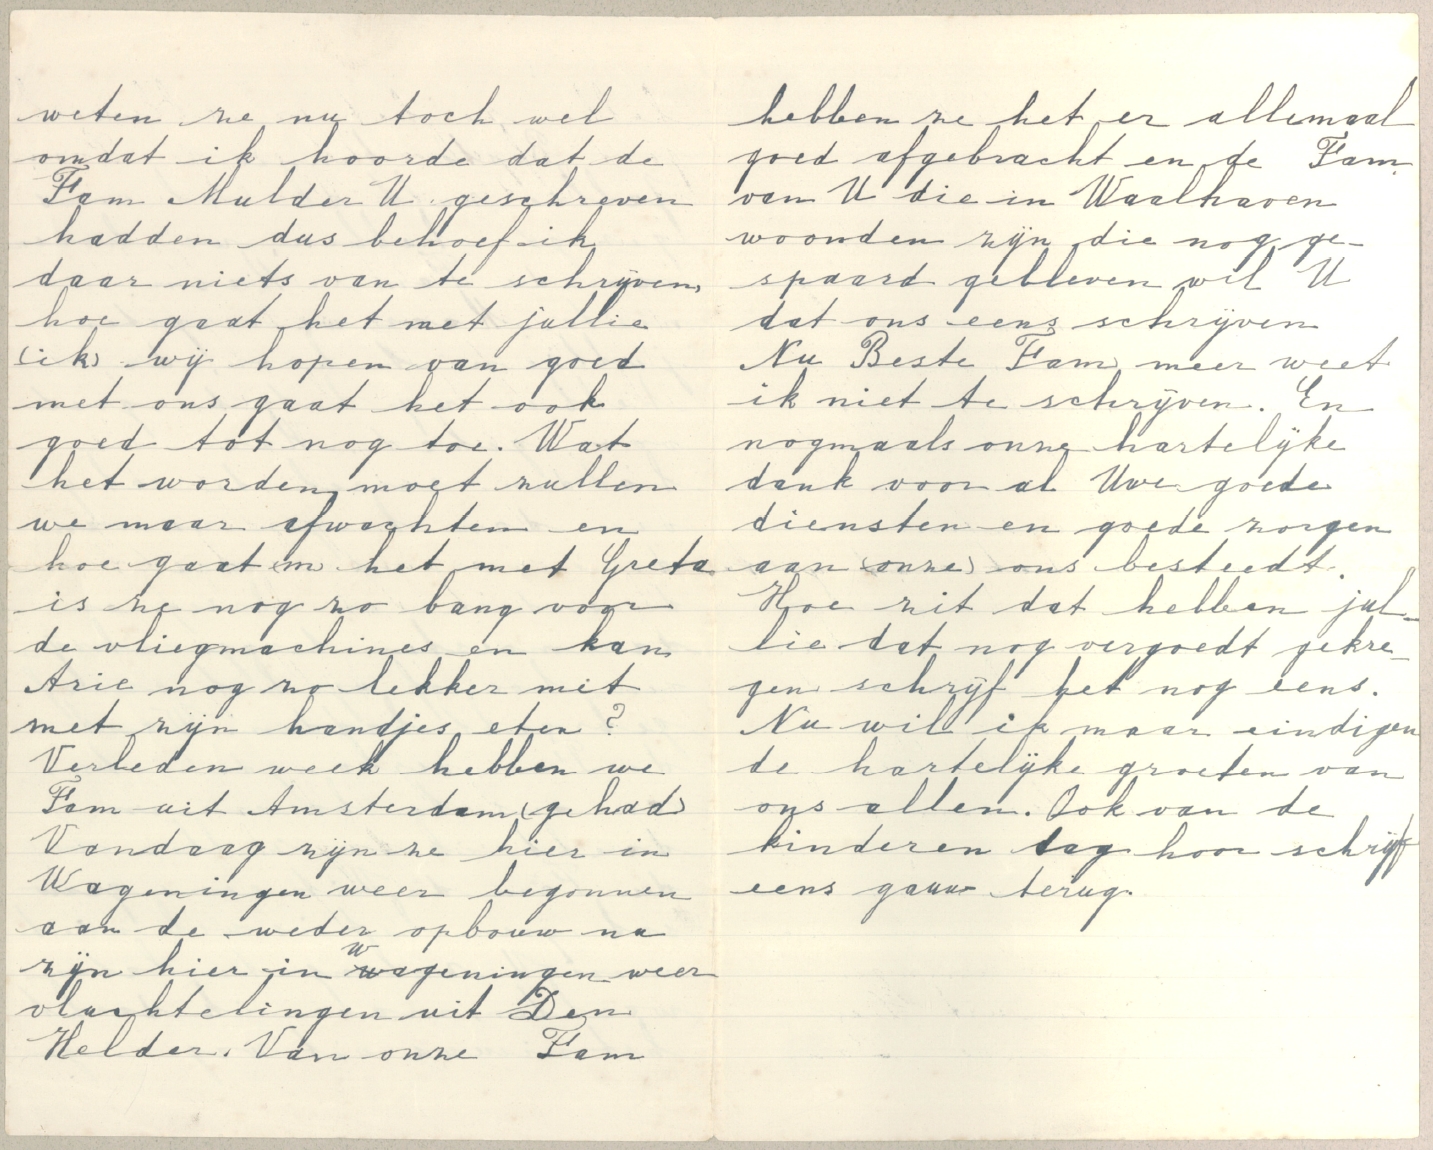 weten ze nu toch wel
omdat ik hoorde dat de
Fam Mulder U geschreven
hadden dus behoef ik
daar niets van te schrijven,
hoe gaat het met jullie
(ik) wij hopen van goed
met ons gaat het ook
goed tot nog toe. Wat
het worden moet zullen
we maar afwachten en
hoe gaat (m) het met Greta
is ze nog zo bang voor
de vliegmachines en kan
Arie nog zo lekker mit
met zijn handjes eten?
Verleden week hebben we
Fam uit Amsterdam (gehad)
Vandaag zijn ze hier in
Wageningen weer begonnen
aan de weder opbouw nu
zijn hier in Wageningen weer
vluchtelingen uit Den
Helder. Van onze Fam
hebben ze het er allemaal
goed afgebracht en de Fam.
van U die in Waalhaven
woonden zijn die nog ge-
spaard gebleven wil U
dat ons eens schrijven
Nu Beste Fam meer weet
ik niet te schrijven. En
nogmaals onze hartelijke
dank voor al Uwe goede
diensten en goede zorgen
aan (onze) ons besteedt.
Hoe zit dat hebben jul-
lie dat nog vergoedt gekre-
gen schrijf het nog eens.
Nu wil ik maar eindigen
de hartelijke groeten van
ons allen. Ook van de
kinderen dag hoor schrijf
eens gauw terug.